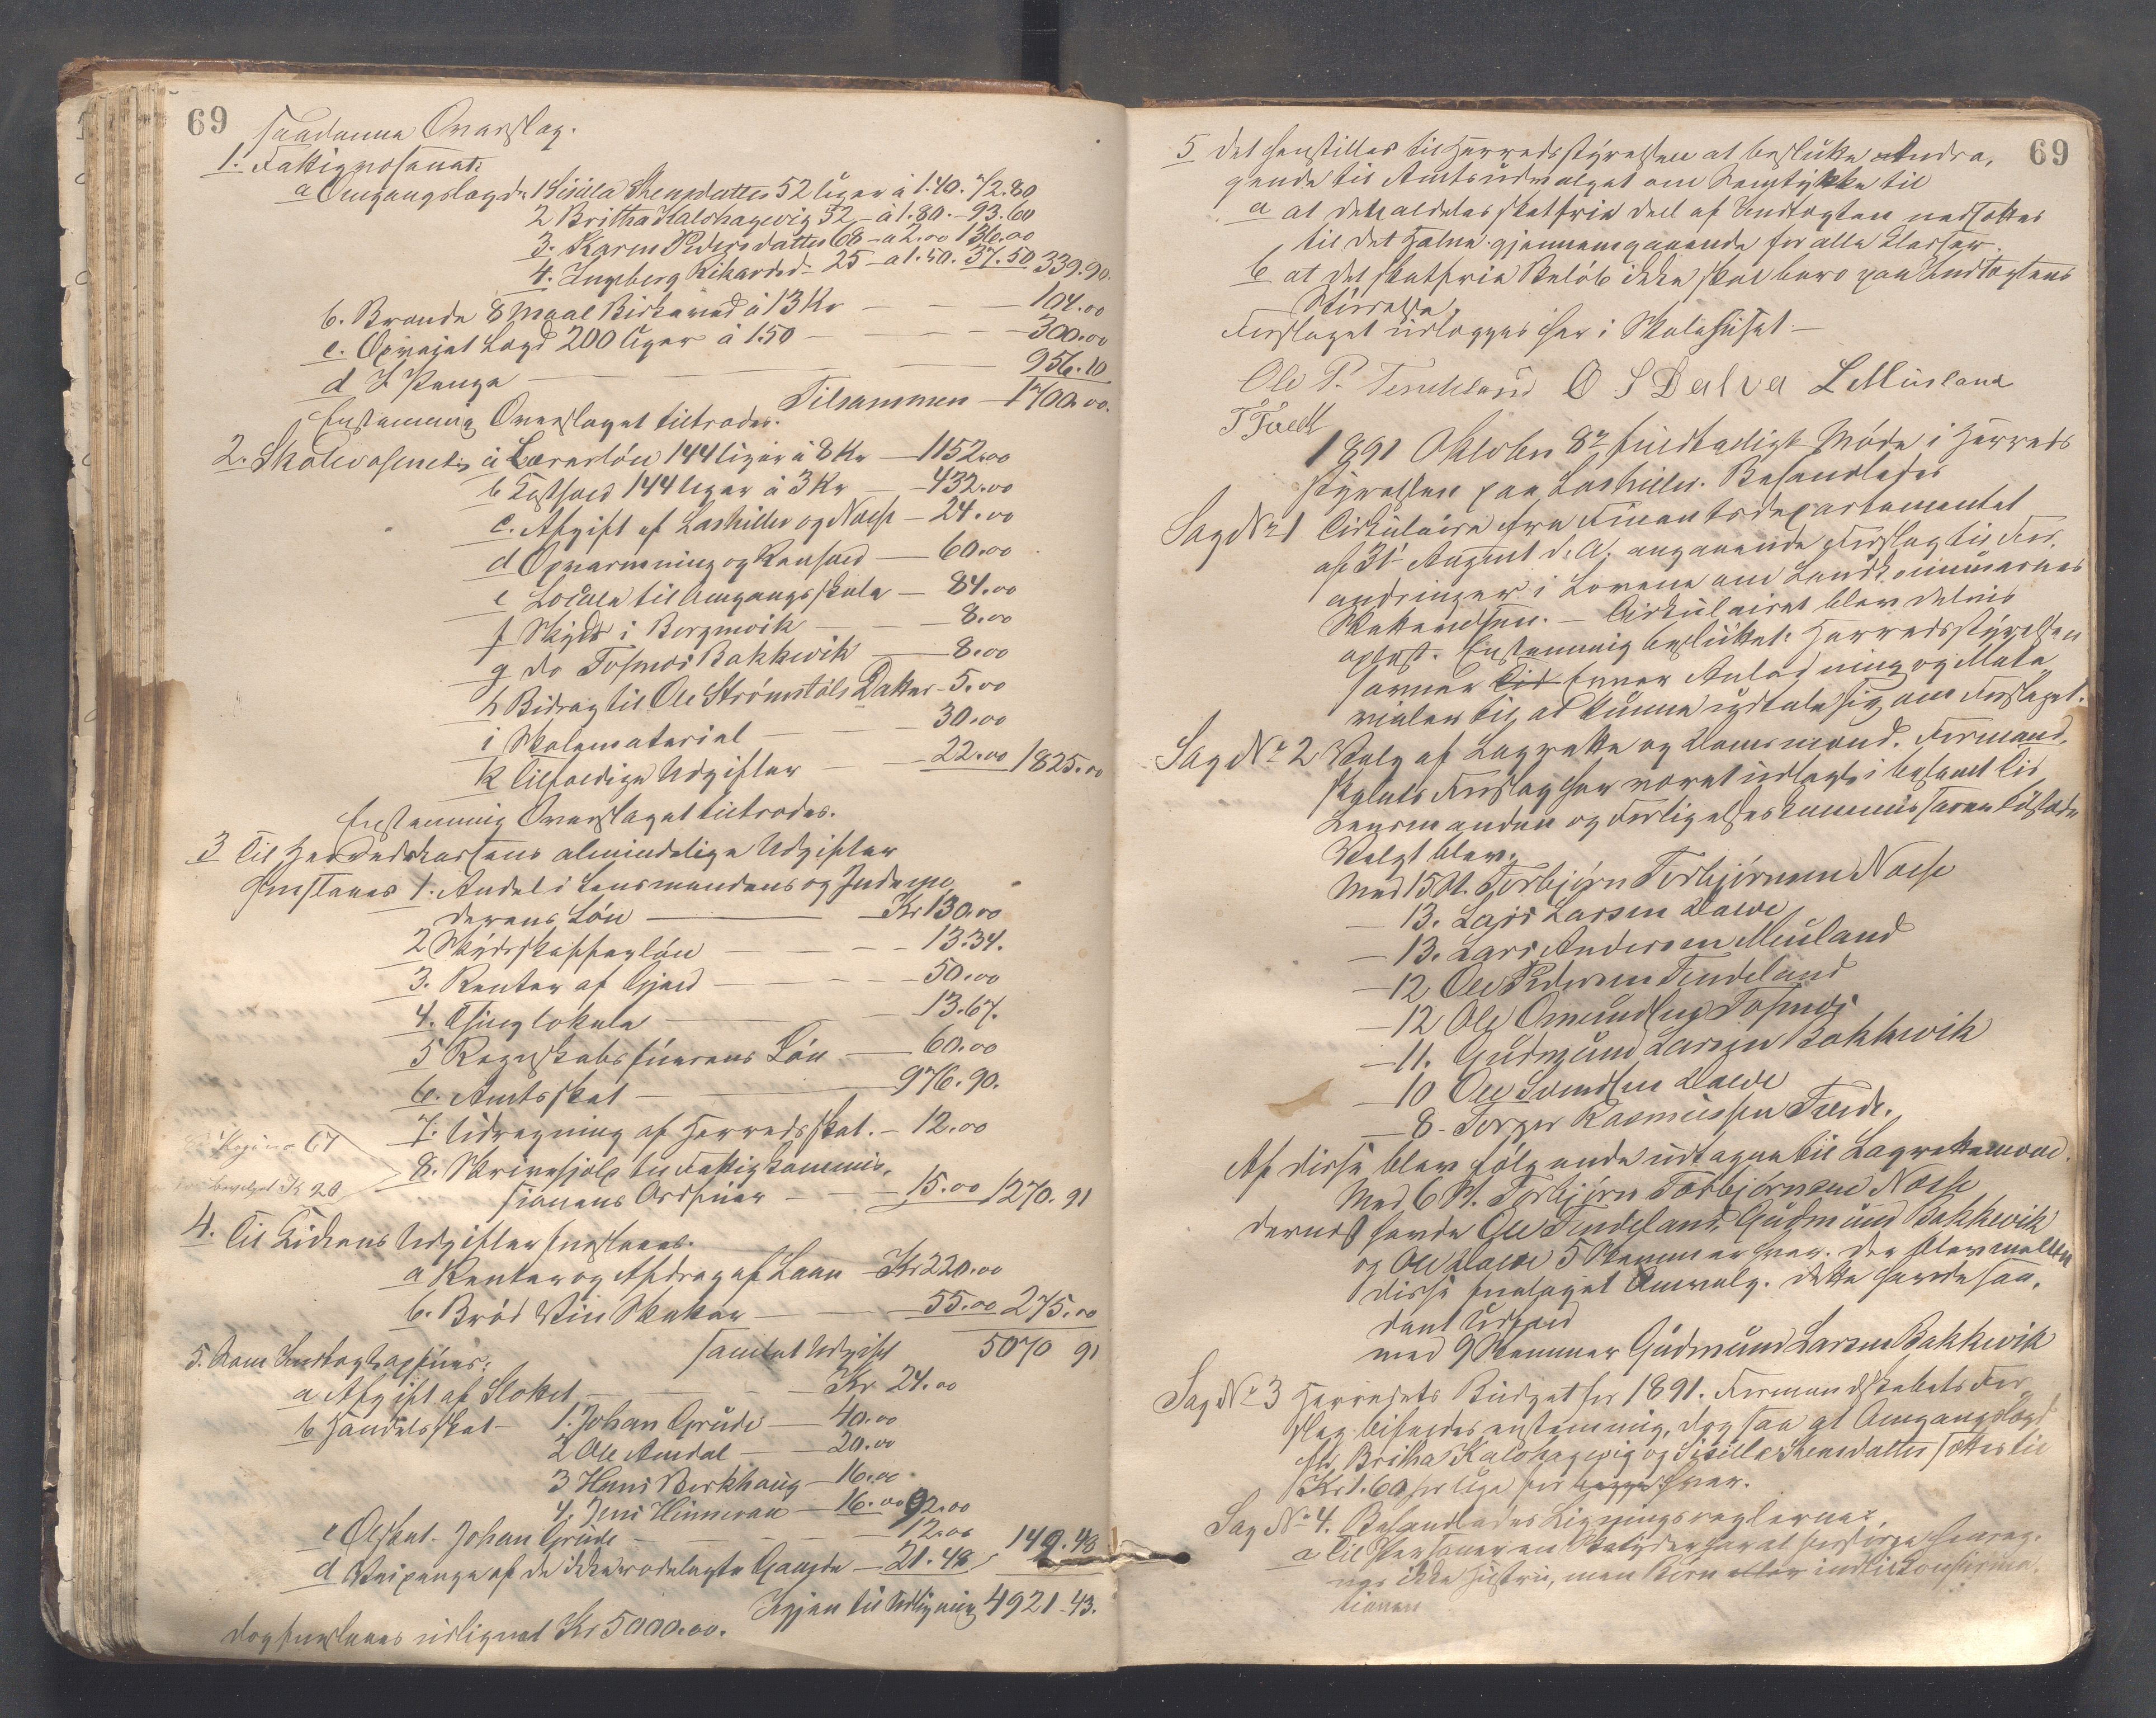 69
saadanne Overslag.
1. Fattigvæsenet:
a Omgangslægd: 1 Sisilla Stensdatter 52 Uger à 1.40. 72.80
2 Britha Kalshagevig 52 - à 1.80. - 93.60
3. Karen Pedersdatter 68 - a 2.00 136.00
4. Ingeberg Rikardsd- 25 - a 1.50. 37.50 339.90.
b. Brænde 8 Maal Birkeved à 13 Kr — 104.00
c. Opveiet Lægd 200 Uger à 1.50 — 300.00
d I Penge — 956.10
Tilsammen — 1700.00.
Enstemmig Overslaget tiltrædes.
2. Skolevæsenet: a Lærerløn 144 Uger à 8 Kr — 1152.00
b Kosthold 144 Uger à 3 Kr — 432.00
c. Afgift af Laskillen og Næse — 24.00
d Opvarmning og Renhold — 60.00
e Locale til Omgangsskole — 84.00
f Skyds i Bergevik — 8.00
g do Tosmoi Bakkevik — 8.00
h Bidrag til Ole Strømstøls Datter - 5.00
i Skolemateriel — 30.00
k Tilfældige Udgifter — 22.00 1825.00
Enstemmig Overslaget tiltrædes.
3 Til Herredskassens almindelige Udgifter
foreslaaes 1. Andel i Lensmandens og
Løn — Kr 130.00
2 Skydsskafferløn — 13.34.
3. Renter af Gjæld — 50.00
4. Thinglokale — 13.67.
5 Regnskabsførerens Løn — 60.00
6. Amtsskat — 976.90.
7. Udregning af Herredsskat. — 12.00
67
bevilget K 20
8. Skrivehjælp til Fattigkommis-
sionens Ordfører — 15.00 1270.91
4. Til Kirkens Udgifter foreslaaes.
a Renter og Afdrag af Laan — Kr 220.00
b. Brød Vin — 55.00 275.00
samlet Udgift 5070 91
5. Som Indtægt opføres:
a Afgift af Slottet — Kr 24.00
b Handelsskat — 1. Johan Grude — 40.00
2 Ole Aendal — 20.00
3 Hans Berkhaug — 16.00
4. Jens Hinneraa — 16.00 92.00
c Ølskat - Johan Grude — 12.00
d Veipenge af de ikke rodelagte Gaarde — 21.48 149.48
Igjen til Udligning 4921.43.
dog foreslaaes udlignet Kr 5000.00.
69
5 det henstilles til Herredsstyrelsen at beslutte Andra-
gende til Amtsudvalget om Samtykke til
a at den aldeles skatfrie Deel af Indtægten nedsættes
til det Halve gjennemgaaende for alle Klasser.
b at det skatfrie Beløb ikke skal bero paa Indtægtens
Størrelse.
Forslaget udlægges her i Skolehuset —
Ole P. Tendeland O S Dalva L Miuland
T Tvedt
1891 Oktober 8de fuldtalligt Møde i Herreds
styrelsen paa Laskillen. Behandledes
Sag No 1 Cirkulaire fra Finantsdepartementet
af 31 August d. A. angaaende Forslag til For-
andringer i Lovene om Landkommunernes
Skattevæsen. — Cirkulairet blev delvis
oplæst. Enstemmig besluttet: Herredsstyrelsen
savner Tid Evner Anledning og Mate
rialer til at kunne udtale sig om Forslaget.
Sag No 2 Valg af Lagrette og Domsmænd. Formand-
skabets Forslag har været udlagt i bestemt Tid
Lensmanden og Forligelseskommissæren tilstæde
Valgt blev.
Med 15 St. Torbjørn Torbjørnsen Næse
— 13. Lars Larsen Dalve
— 13. Lars Andersen Miuland
— 12 Ole Pedersen Tendeland
— 12 Ole Omundsen Tosmoi
— 11. Gudmund Larsen Bakkevik
— 10 Ole Svendsen Dalve
— 8 - Torger Rasmussen Tvedt.
Af disse blev følgende udtagne til Lagrettemænd.
Med 6 St. Torbjørn Torbjørnsen Næse
dernæst havde Ole Tendeland Gudmund Bakkevik
og Ole Dalve 5 Stemmer hver. Der blev mellem
disse foretaget Omvalg. Dette havde saa-
dant Udfald
med 9 Stemmer Gudmund Larsen Bakkevik
Sag No 3 Herredets Budget for 1891. Formandskabets For
slag bifaldes enstemmig, dog saa at Omgangslægd
for Britha Kalshagevig og Sisille Stensdatter sættes til
Kr 1.60 per Uge for begge hver.
Sag No 4. Behandledes Ligningsreglerne,
a Til Personer en Skatyder har at forsørge henreg-
nes ikke Hustru, men Børn indtil Konfirma-
tionen